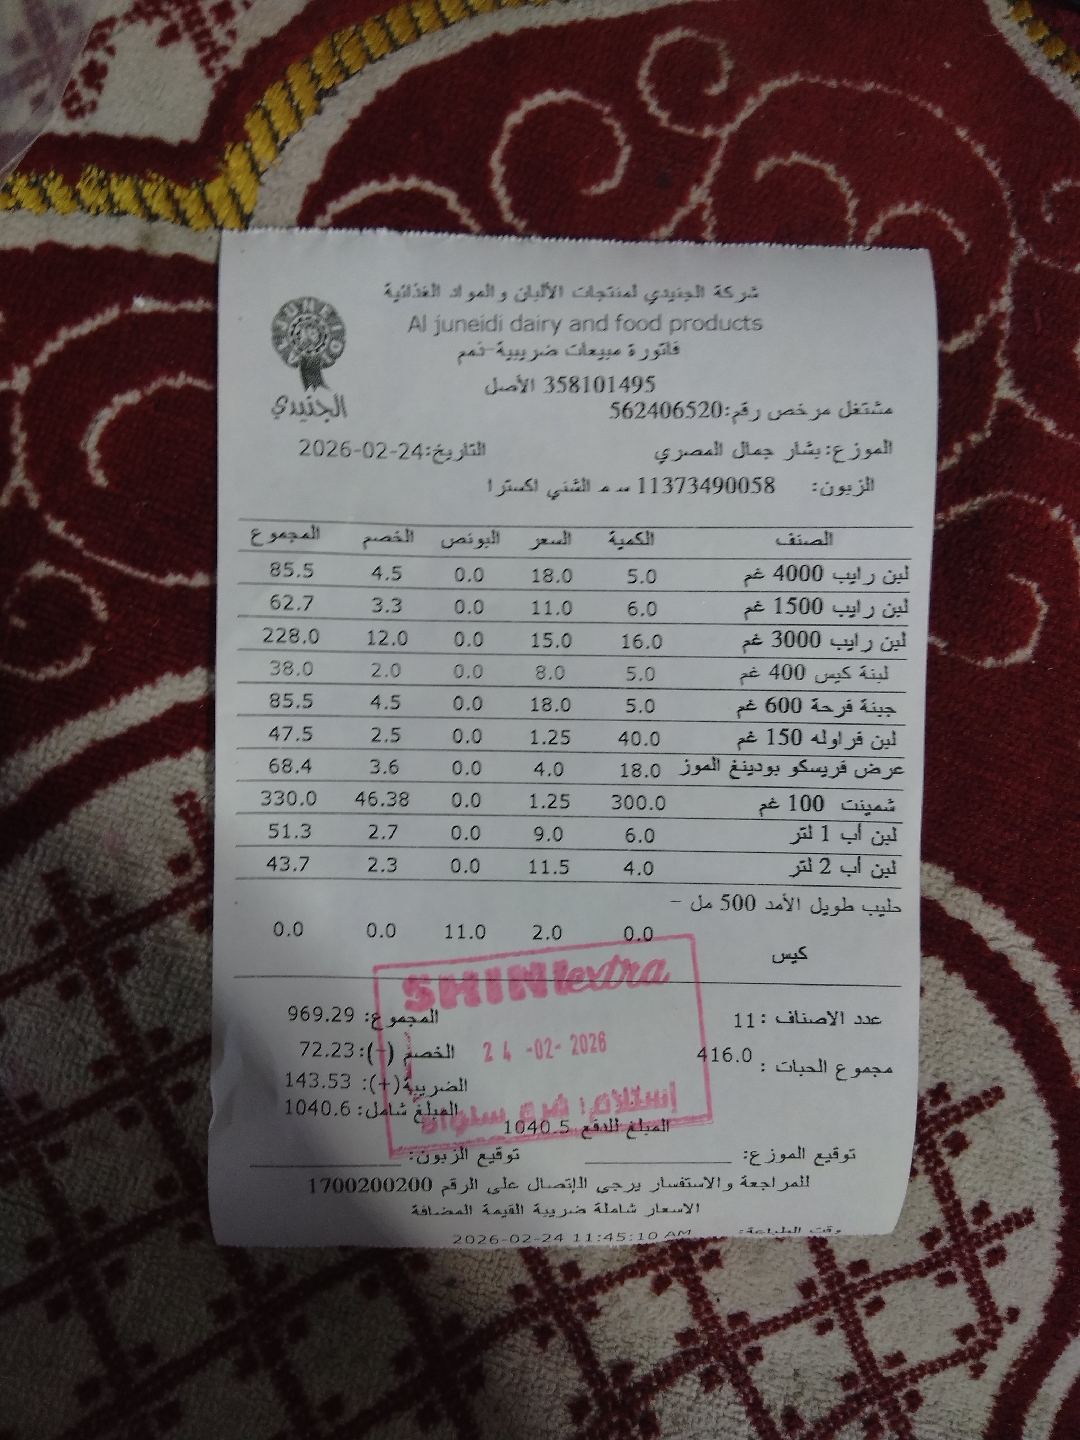 شركة الجنيدي لمنتجات الألبان والمواد الغذائية
Al juneidi dairy and food products
فاتورة مبيعات ضريبية-ذمم
358101495 الأصل
الجنيدي
مشتغل مرخص رقم:562406520
الموزع: بشار جمال المصري التاريخ:2026-02-24
الزبون: 11373490058 س م الشني اكسترا
الصنف الكمية السعر البونص الخصم المجموع
لبن رايب 4000 غم 5.0 18.0 0.0 4.5 85.5
لبن رايب 1500 غم 6.0 11.0 0.0 3.3 62.7
لبن رايب 3000 غم 16.0 15.0 0.0 12.0 228.0
لبنة كيس 400 غم 5.0 8.0 0.0 2.0 38.0
جبنة فرحة 600 غم 5.0 18.0 0.0 4.5 85.5
لبن فراوله 150 غم 40.0 1.25 0.0 2.5 47.5
عرض فريسكو بودينغ الموز 18.0 4.0 0.0 3.6 68.4
شمينت 100 غم 300.0 1.25 0.0 46.38 330.0
لبن أب 1 لتر 6.0 9.0 0.0 2.7 51.3
لبن أب 2 لتر 4.0 11.5 0.0 2.3 43.7
حليب طويل الأمد 500 مل -
0.0 2.0 11.0 0.0 0.0
كيس
SHINI extra
عدد الاصناف : 11 المجموع: 969.29
24 -02- 2026
مجموع الحبات : 416.0 الخصم (-): 72.23
الضريبة(+): 143.53
المبلغ شامل: 1040.6
إستلام: فرع
المبلغ للدفع 1040.5
توقيع الموزع: توقيع الزبون:
للمراجعة والاستفسار يرجى الإتصال على الرقم 1700200200
الاسعار شاملة ضريبة القيمة المضافة
وقت الطباعة: 2026-02-24 11:45:10 AM